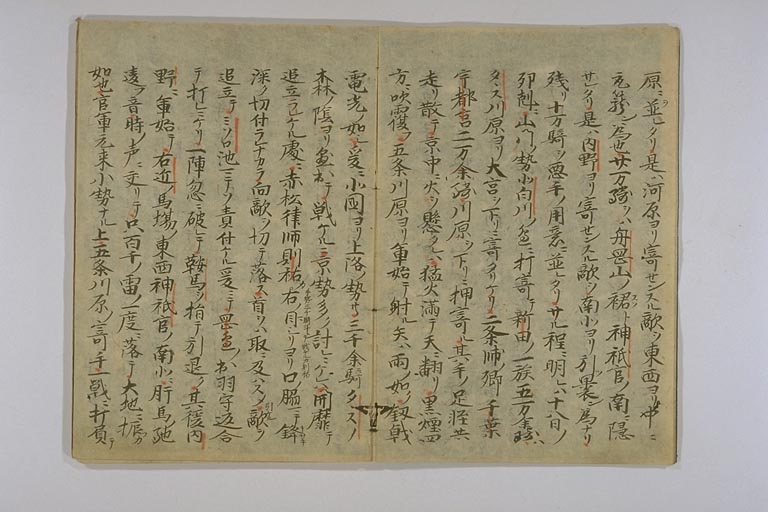 原ニ並ヒタリ是ハ河原ヨリ寄サンスル敵ヲ東西ヨリ中ニ
籠ン為也廿一万騎ヲハ舟岡山ノ裾ト神祇官ノ南ニ隠
サレタリ是ハ内野ヨリ寄サンスル敵ヲ南北ヨリ引裹ン為ナリ
残ル十万騎ヲ悪手ノ用意ニ並ヒタリサル程ニ明レハ十八日ノ
卯尅ニ山門ノ勢北白川ノ 打寄テ新田ノ一族五万余騎ハ
タヽス川原ヨリ大宮ヲ下リニ寄タリケリ二条師郷千葉
宇都宮二万余騎川原ヲ下リニ押寄ル其手ノ足軽共
走リ散テ京中ニ火ヲ懸タレハ猛火満テ天ニ翻リ黒煙四
方ニ吹覆フ五条川原ヨリ軍始テ射ル矢ハ雨ノ如ク釼戟
電光ノ如シ爰ニ小国ヨリ上洛ノ勢廿三千余騎タヽスノ
森ノ陰ヨリ 出テ戦ケルニ京勢多ク討レニケレハ開靡テ
追立ラレケル處ニ赤松律師則祐右ノ目シリヨリ口ノ脇ニテ鋒
深ク切付ラレナカラ向敵ヲ切テ落ス首ヲハ取ニ及ハスノ敵ヲ
追立テミソロ池ニテソ責付ケル爰ニテ 出羽守返合
テ打レニケリ一陣忽ニ破レテ鞍馬ヲ指テ引退ク其後内
野ニ軍始テ右近ノ馬場ノ東西神祇官ノ南北ニ肝馬馳
違フ音時ノ声ニ交リテ只百千ノ雷ノ一度ニ落テ大地ニ振カ
如也官軍元来小勢ナル上五条川原ノ寄手戦ニ打負テ